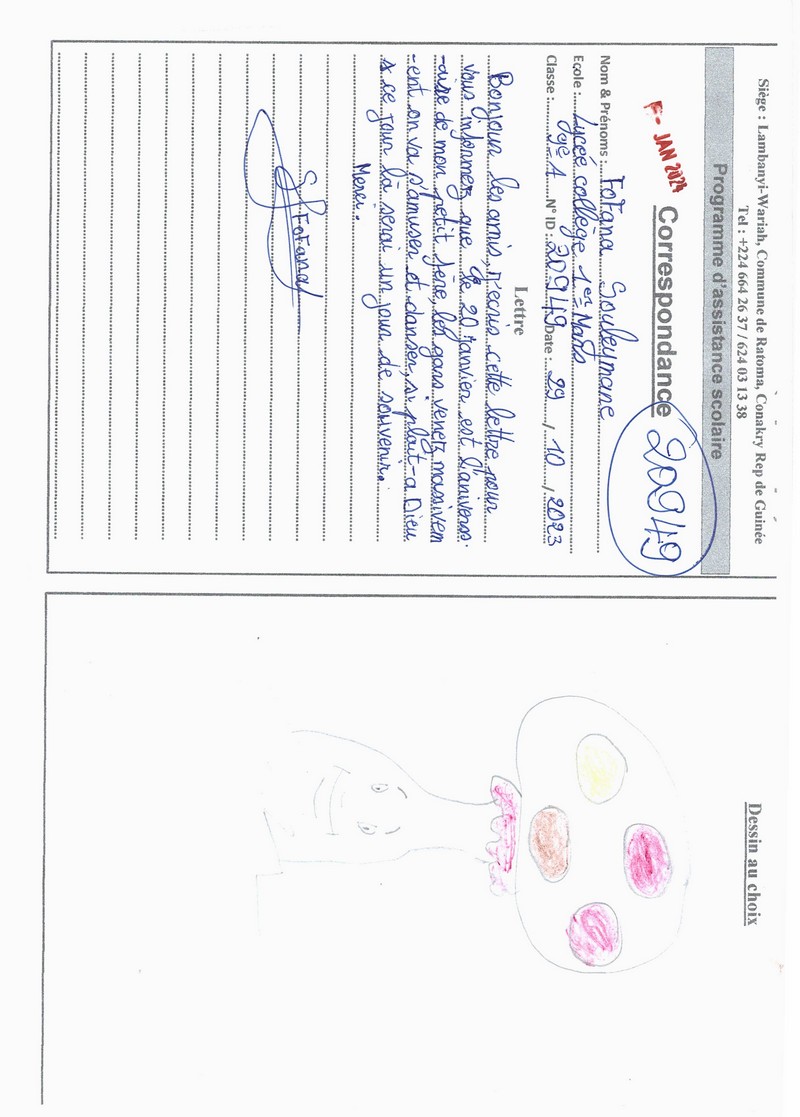 Siège : Lambanyi-Wariah, Commune de Ratoma, Conakry Rep de Guinée
Tel : +224 664 26 37 / 624 03 13 38
Programme d'assistance scolaire
F - JAN 2024
Correspondance
20949
Nom & Prénoms : Fofana Souleymane
Ecole : Lycée collège 1er Mars
Classe : N° ID : 20949 Date : 29 / 10 / 2023
Lettre
Bonjour les amis, j'ecris cette lettre pour
vous informez que le 20 janvier est l'anivers-
-aire de mon petit frère, les gars venez massivem
-ent on va s'amuser et danser, si plait-a Dieu
ce jour là serai un jour de souvenir.
Merci.
S Fofana
Dessin au choix